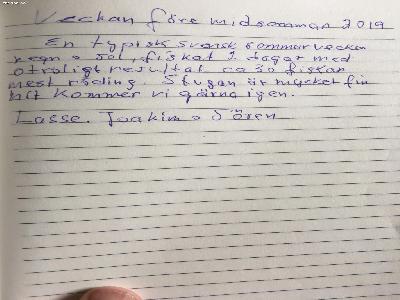 Veckan före midsommar 2019
En typisk svensk sommarvecka
regn o sol, fiskat 2 dagar med
otroligt resultat ca 50 fiskar
mest röding. Stugan är mycket fin
hit kommer vi gärna igen.
Lasse. Joakim o Sören